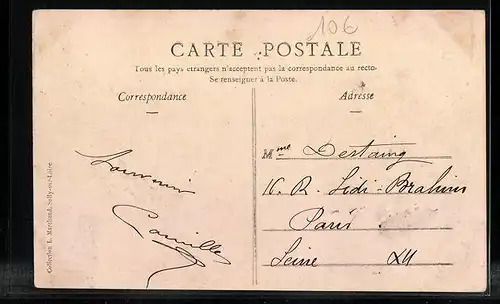 106
CARTE POSTALE
Tous les pays étrangers n'acceptent pas la correspondance au recto-
Se renseigner à la Poste.
Correspondance
Adresse
Souvenir
Camille
Mme Destaing
10. R. Sidi-Brahim
Paris
Seine XII
Collection L. Marchand, Sully-sur-Loire